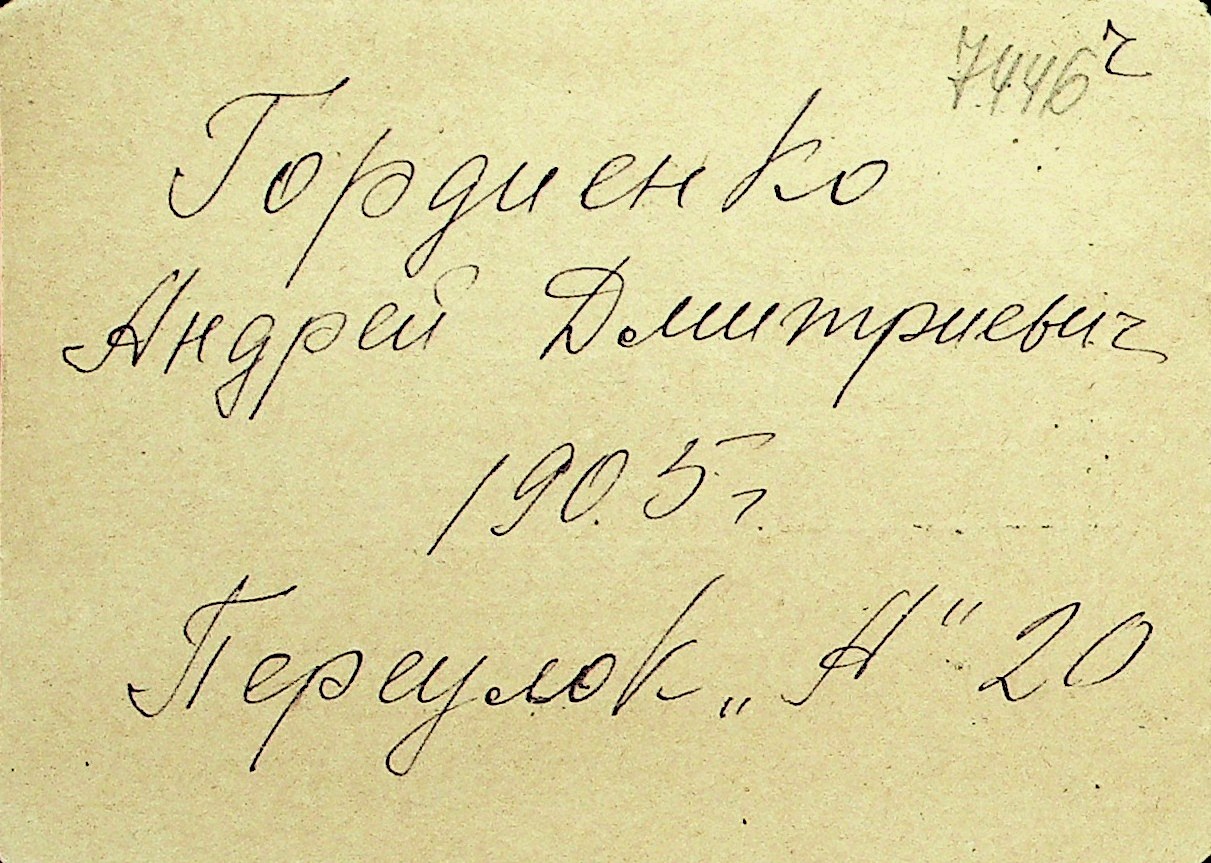 7446 ч
Гордиенко
Андрей Дмитриевич
1905 г.
Переулок „А" 20